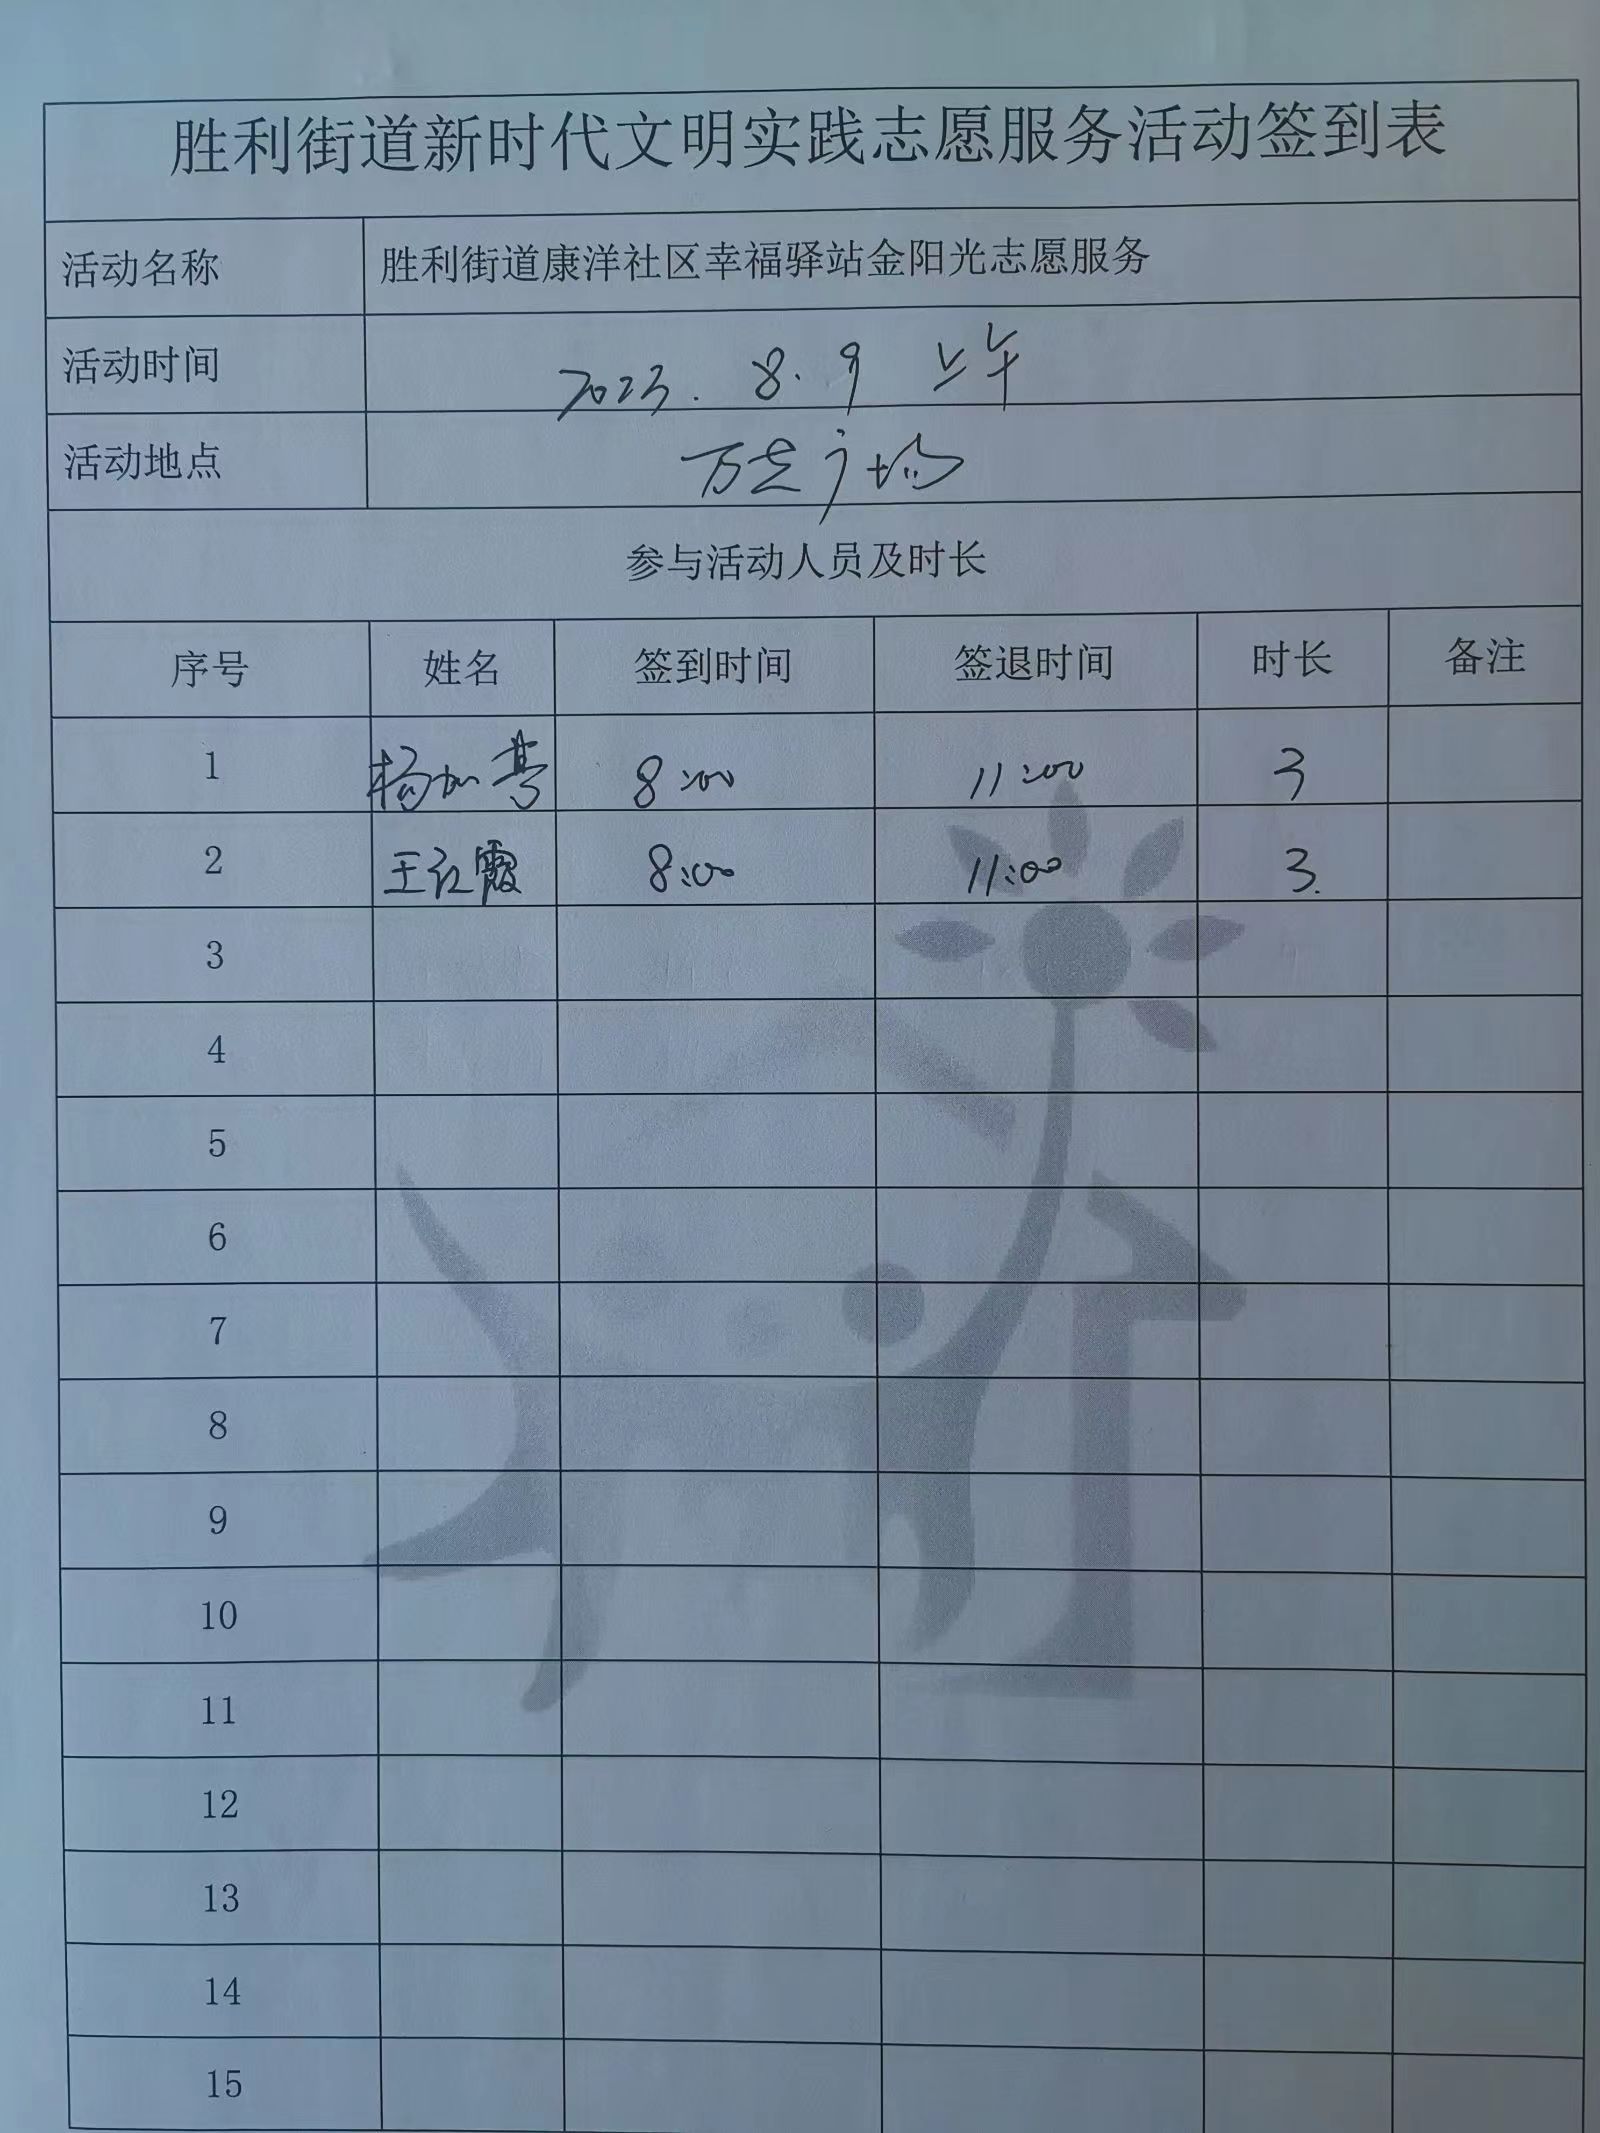 胜利街道新时代文明实践志愿服务活动签到表
活动名称 胜利街道康洋社区幸福驿站金阳光志愿服务
活动时间 2023. 8. 9 上午
活动地点 万达广场
参与活动人员及时长
序号 姓名 签到时间 签退时间 时长 备注
1 杨加 8:00 11:00 3
2 王红霞 8:00 11:00 3.
3
4
5
6
7
8
9
10
11
12
13
14
15